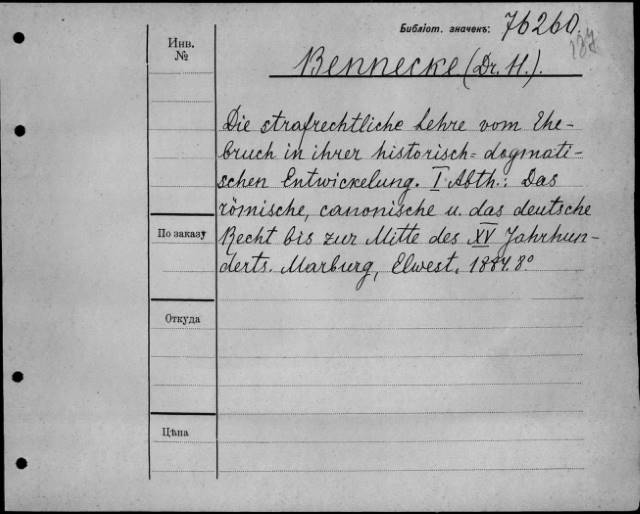 Библіот. значекъ: 76260
137
Инв.
№
Bennecke (Dr. H.).
Die strafrechtliche Lehre vom Ehe-
bruch in ihrer historisch-dogmati-
schen Entwickelung. I Abth.: Das
römische, canonische u. das deutsche
По заказу
Recht bis zur Mitte des XV Jahrhun-
derts. Marburg, Elwest. 1884. 8º
Откуда
Цѣна